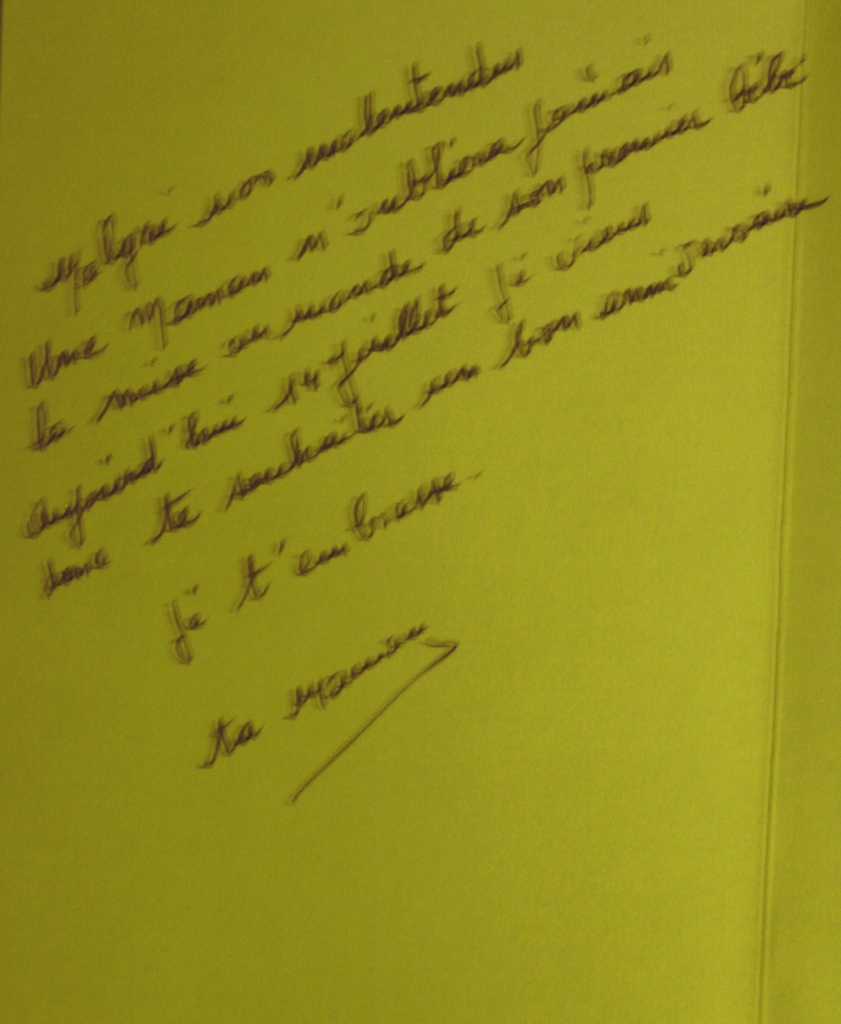 Malgré nos malentendus
Une Maman n'oubliera jamais
la mise au monde de son premier Bébé
aujourd'hui 14 juillet je viens
donc te souhaiter un bon anniversaire
je t'embrasse.
ta Maman